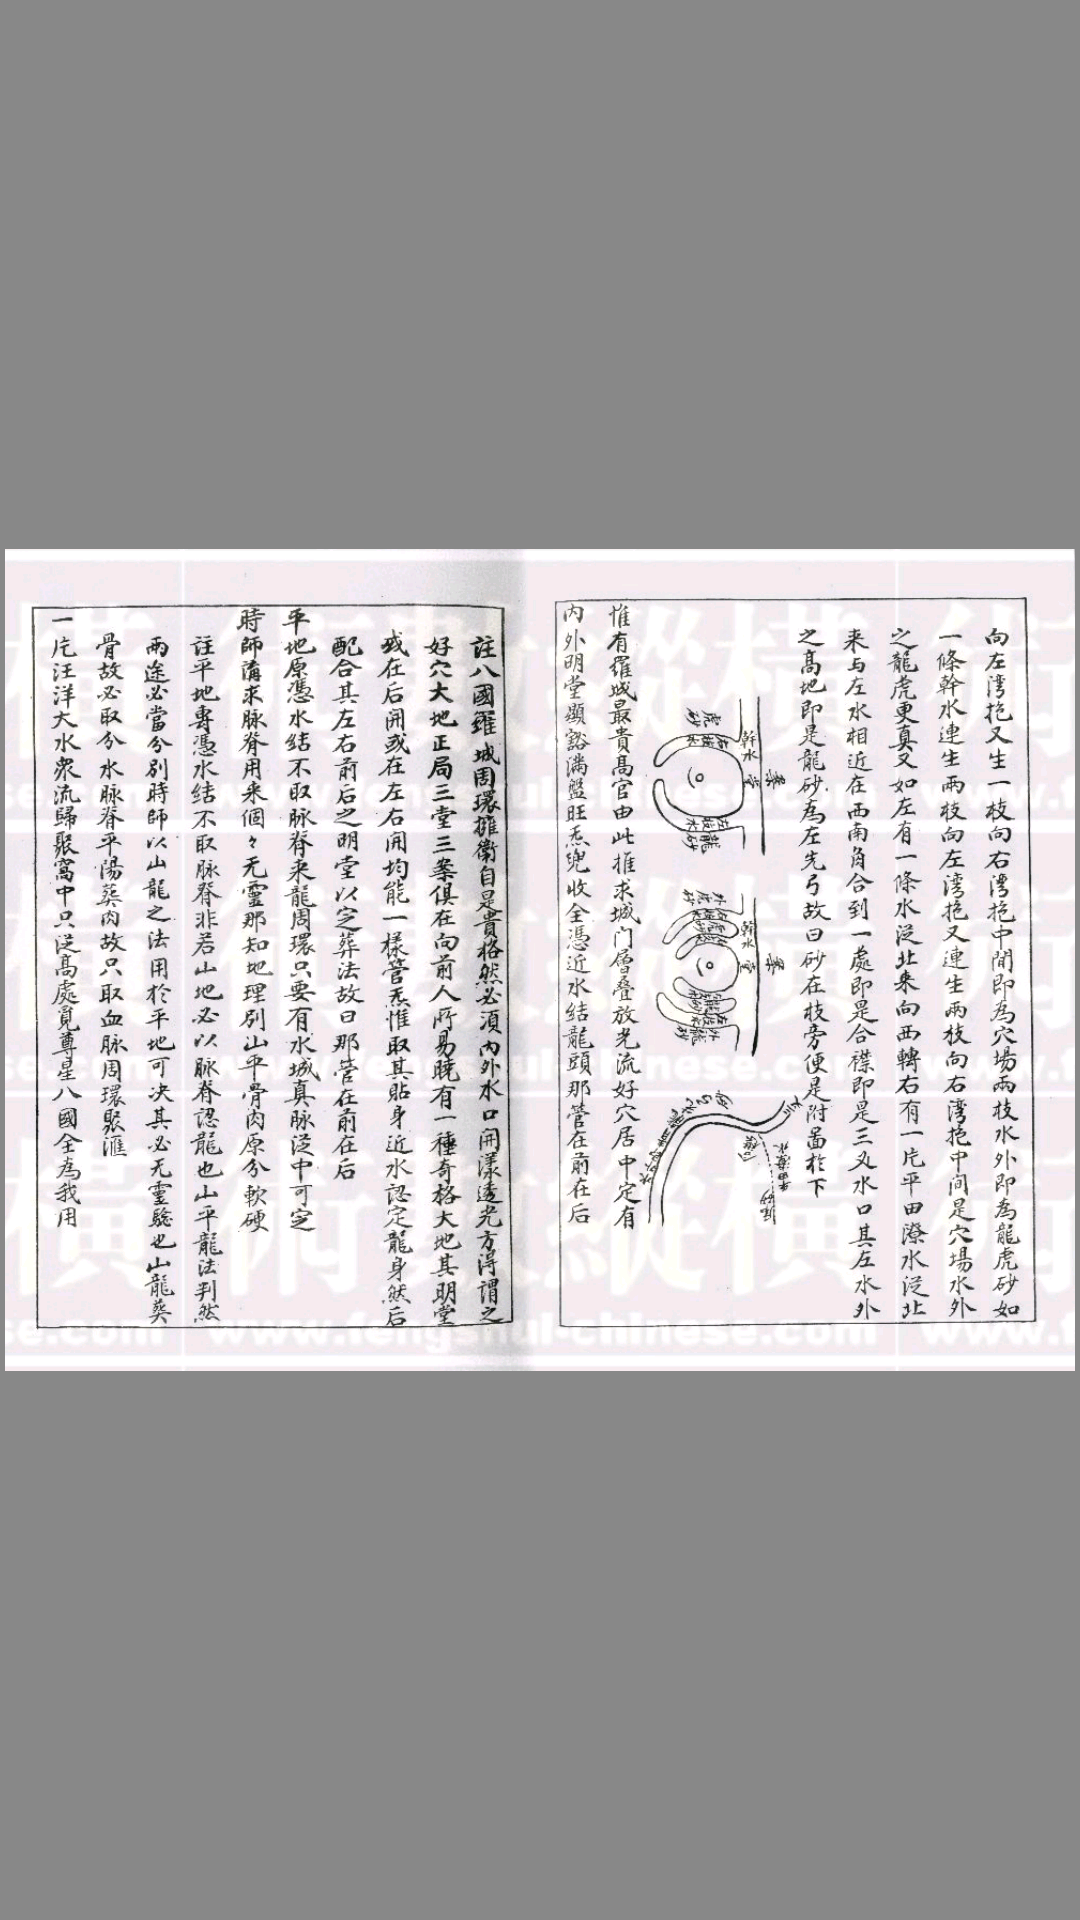 向左湾抱又生一枝向右湾抱中間即為穴場兩枝水外即為龍虎砂如
一條幹水連生兩枝向左湾抱又連生兩枝向右湾抱中间是穴場水外
之龍虎更真又如左有一條水泛北來向西轉右有一片平田潦水泛北
来与左水相近在西南角合到一處即是合襟即是三义水口其左水外
之髙地即是龍砂為左先弓故曰砂在枝旁便是附啚於下
案
堂
幹水
虎砂
龍砂
案
堂
幹水
惟有羅城最貴髙官由此推求城门層叠放光流好穴居中定有
内外明堂顯豁滿盤旺炁兜收全憑近水結龍頭那管在前在后
註八國羅城周環擁衛自是貴格然必須内外水口開漾透光方淂謂之
好穴大地正局三堂三案俱在向前人所易曉有一種奇格大地其明堂
或在后開或在左右開均能一樣管炁惟取其貼身近水認定龍身然后
配合其左右前后之明堂以定葬法故曰那管在前在后
平地原憑水結不取脉脊来龍周環只要有水城真脉泛中可定
時師蕅求脉脊用來個々无靈那知地理別山平骨肉原分軟硬
註平地專憑水结不取脉脊非若山地必以脉脊認龍也山平龍法判然
兩途必當分别時師以山龍之法用於平地可决其必无靈驗也山龍葬
骨故必取分水脉脊平陽葬肉故只取血脉周環聚滙
一片汪洋大水衆流歸聚窩中只泛髙處覓尊星八國全為我用